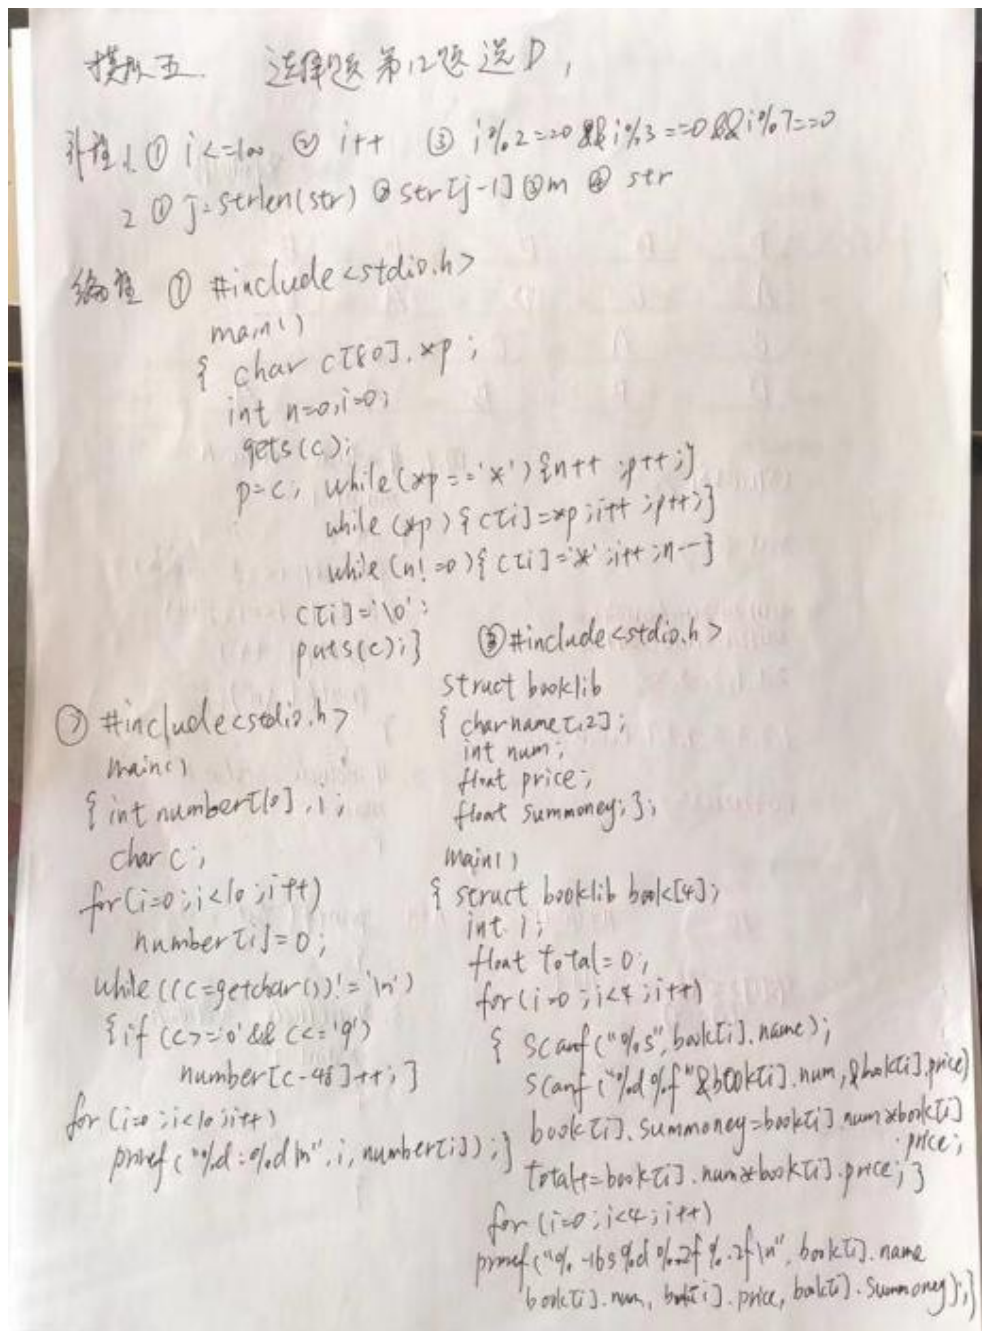 模拟五. 选择题第12题选D,
补程1. ① i<=100 ② i++ ③ i%2==0&&i%3==0&&i%7==0
2 ① j=strlen(str) ② str[j-1] ③ m ④ str
编程 ① #include<stdio.h>
main()
{ char c[80],*p;
int n=0,i=0;
gets(c);
p=c; while(*p=='*'){n++;p++;}
while(*p){c[i]=*p;i++;p++;}
while(n!=0){c[i]='*';i++;n--}
c[i]='\0';
puts(c);}
② #include<stdio.h>
main()
{ int number[10],i;
char c;
for(i=0;i<10;i++)
number[i]=0;
while((c=getchar())!='\n')
{if(c>='0'&&c<='9')
number[c-48]++;}
for(i=0;i<10;i++)
printf("%d:%d\n",i,number[i]);}
③ #include<stdio.h>
struct booklib
{ char name[12];
int num;
float price;
float summoney;};
main()
{ struct booklib book[4];
int i;
float total=0;
for(i=0;i<4;i++)
{ scanf("%s",book[i].name);
scanf("%d%f"&book[i].num,&book[i].price)
book[i].summoney=book[i].num*book[i]
.price;
total+=book[i].num*book[i].price;}
for(i=0;i<4;i++)
printf("%-16s%d%.2f%.2f\n",book[i].name
book[i].num,book[i].price,book[i].summoney);}